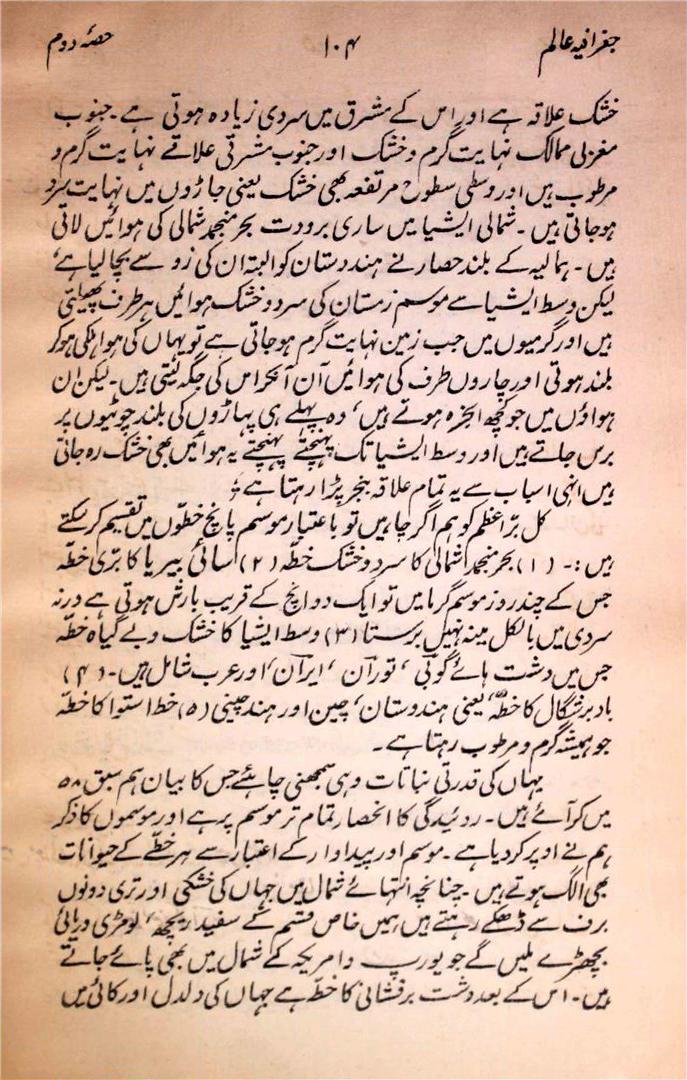 جغرافیہ عالم ۱۰۴ حصۂ دوم
خشک علاقہ ہے اور اس کے مشرق میں سردی زیادہ ہوتی ہے۔ جنوب
مغربی ممالک نہایت گرم و خشک اور جنوب مشرقی علاقے نہایت گرم و
مرطوب ہیں اور وسطی سطوح مرتفعہ بھی خشک یعنی جاڑوں میں نہایت سرد
ہوجاتی ہیں۔ شمالی ایشیا میں ساری برودت بحر منجمد شمالی کی ہوائیں لاتی
ہیں۔ ہمالیہ کے بلند حصار نے ہندوستان کو البتہ ان کی زد سے بچا لیا ہے
لیکن وسط ایشیا سے موسم زمستان کی سرد و خشک ہوائیں ہر طرف پھیلتی
ہیں اور گرمیوں میں جب زمین نہایت گرم ہوجاتی ہے تو یہاں کی ہوا ہلکی ہوکر
بلند ہوتی اور چاروں طرف کی ہوائیں آن آنکر اس کی جگہ لیتی ہیں۔ لیکن ان
ہواؤں میں جو کچھ ابخرہ ہوتے ہیں، وہ پہلے ہی پہاڑوں کی بلند چوٹیوں پر
برس جاتے ہیں اور وسط ایشیا تک پہنچتے پہنچتے یہ ہوائیں بھی خشک رہ جاتی
ہیں انہی اسباب سے یہ تمام علاقہ بنجر پڑا رہتا ہے؛
کل برّاعظم کو ہم اگر چاہیں تو باعتبار موسم پانچ خطّوں میں تقسیم کرسکتے
ہیں:۔ (۱) بحر منجمد شمالی کا سرد و خشک خطّہ (۲) سائی بیریا کا برّی خطّہ
جس کے چند روز موسم گرما میں تو ایک دو انچ کے قریب بارش ہوتی ہے ورنہ
سردی میں بالکل مینہ نہیں برستا (۳) وسط ایشیا کا خشک و بے گیاہ خطّہ
جس میں دشت ہائے گوبی، توران، ایران، اور عرب شامل ہیں۔ (۴)
باد برشگال کا خطّہ، یعنی ہندوستان، چین اور ہند چینی (۵) خط استوا کا خطّہ
جو ہمیشہ گرم و مرطوب رہتا ہے۔
یہاں کی قدرتی نباتات وہی سمجھنی چاہئے جس کا بیان ہم سبق ۵۸
میں کر آئے ہیں۔ روئیدگی کا انحصار تمام تر موسم پر ہے اور موسموں کا ذکر
ہم نے اوپر کردیا ہے۔ موسم اور پیداوار کے اعتبار سے ہر خطّے کے حیوانات
بھی الگ ہوتے ہیں۔ چنانچہ انتہائے شمال میں جہاں کی خشکی اور تری دونوں
برف سے ڈھکے رہتے ہیں ہمیں خاص قسم کے سفید ریچھ، لومڑی دریائی
بچھڑے ملیں گے جو یورپ و امریکہ کے شمال میں بھی پائے جاتے
ہیں۔ اس کے بعد دشت برفشانی کا خطّہ ہے جہاں کی دلدل اور کائی میں